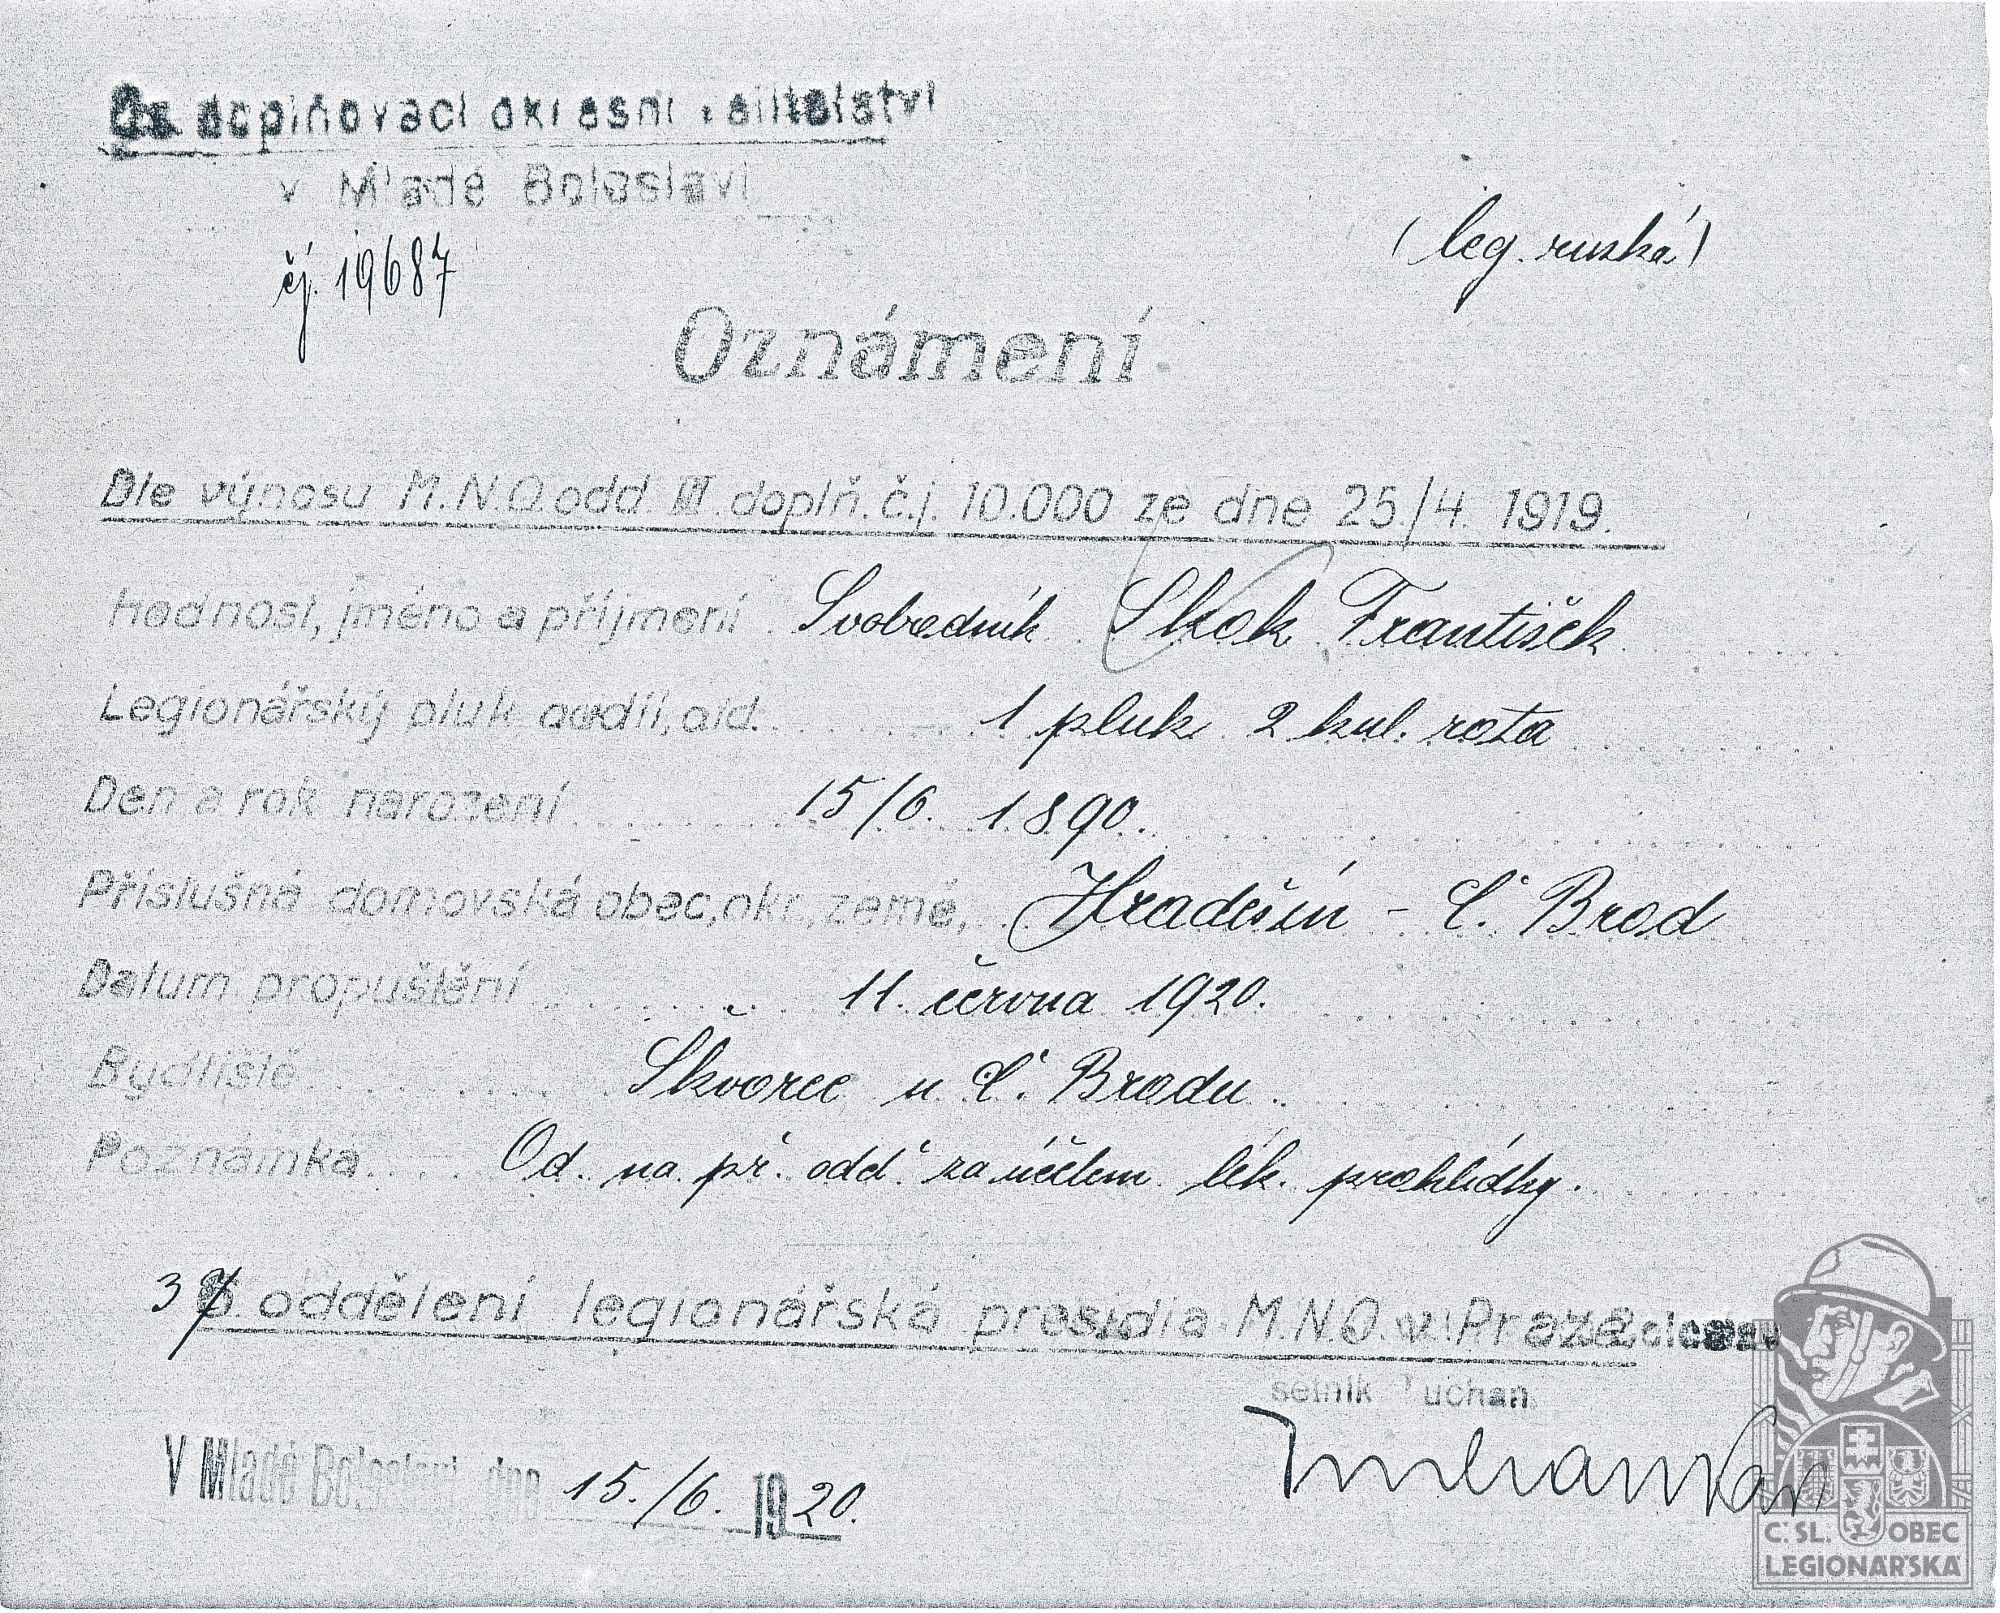 Čs. doplňovací okresní velitelství
v Mladé Boleslavi
čj. 19687
(leg. ruská)
Oznámení.
Dle výnosu M.N.O. odd. III. doplň. č.j. 10.000 ze dne 25./4. 1919.
Hodnost, jméno a příjmení Svobodník Skok František
Legionářský pluk a odíl, atd. 1 pluk 2 kul. rota
Den a rok narození 15/6. 1890.
Příslušná domovská obec, okr., země, Hradešín - Č. Brod
Datum propuštění 11. června 1920.
Bydliště Škvorec u Č. Brodu
Poznámka Od. na př. odd. za účelem lék. prohlídky.
37 oddělení legionářská presidia M.N.O. v Praze
setník
V Mladé Boleslavi, dne 15./6. 1920.
Č. SL. OBEC
LEGIONÁŘSKÁ